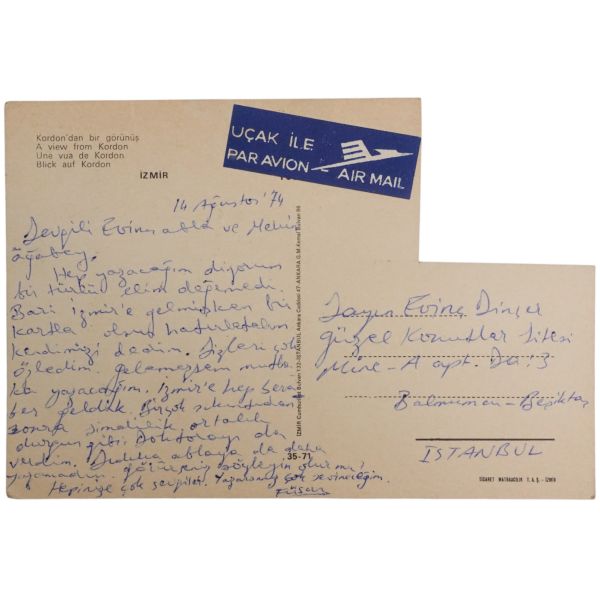 Kordon'dan bir görünüş
A view from Kordon
Une vua de Kordon
Blick auf Kordon
İZMİR
UÇAK İLE
PAR AVION AIR MAIL
14 Ağustos '74
Sevgili Evinç abla ve Metin
Ağabey,
Hep yazacağım diyorum
bir türlü elim değemedi.
Bari İzmir'e gelmişken bir
kartla olsun hatırlatalım
kendimizi dedim. Sizleri çok
özledim. gelemezsem mutla
ka yazacağım. İzmir'e hep bera
ber geldik. Birçok sıkıntıdan
sonra şimdilik ortalık
durgun gibi. Doktorayı da
verdim. ablaya da daha
yazamadım. görürseniz söyleyin olur mu?
Hepinize çok sevgiler. Yazarsanız çok sevineceğim.
Füsun
İZMİR Cumhuriyet Bulvarı 132-İSTANBUL Ankara Caddesi 47-ANKARA G.M.Kemal Bulvarı
35-71
Sayın Evinç Dinçer
Güzel Konutlar Sitesi
Mine-A apt. Da: 3
Balmumcu-Beşiktaş
İSTANBUL
TİCARET MATBAACILIK T.A.Ş.-İZMİR